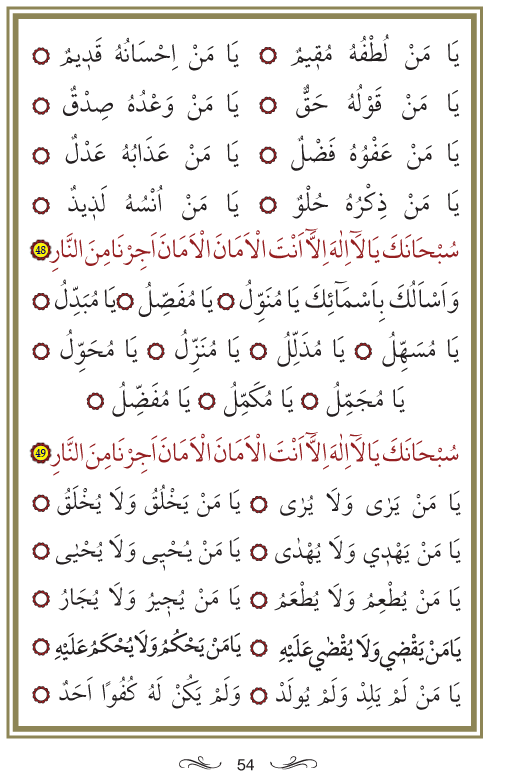 يَا مَنْ لُطْفُهُ مُقِيمٌ ۞ يَا مَنْ اِحْسَانُهُ قَدِيمٌ ۞
يَا مَنْ قَوْلُهُ حَقٌّ ۞ يَا مَنْ وَعْدُهُ صِدْقٌ ۞
يَا مَنْ عَفْوُهُ فَضْلٌ ۞ يَا مَنْ عَذَابُهُ عَدْلٌ ۞
يَا مَنْ ذِكْرُهُ حُلْوٌ ۞ يَا مَنْ اُنْسُهُ لَذِيذٌ ۞
سُبْحَانَكَ يَا لَٓا اِلٰهَ اِلَّٓا اَنْتَ الْاَمَانَ الْاَمَانَ اَجِرْنَا مِنَ النَّارِ 48
وَ اَسْاَلُكَ بِاَسْمَٓائِكَ يَا مُنَوِّلُ ۞ يَا مُفَصِّلُ ۞ يَا مُبَدِّلُ ۞
يَا مُسَهِّلُ ۞ يَا مُذَلِّلُ ۞ يَا مُنَزِّلُ ۞ يَا مُحَوِّلُ ۞
يَا مُجَمِّلُ ۞ يَا مُكَمِّلُ ۞ يَا مُفَضِّلُ ۞
سُبْحَانَكَ يَا لَٓا اِلٰهَ اِلَّٓا اَنْتَ الْاَمَانَ الْاَمَانَ اَجِرْنَا مِنَ النَّارِ 49
يَا مَنْ يَرٰى وَلَا يُرٰى ۞ يَا مَنْ يَخْلُقُ وَلَا يُخْلَقُ ۞
يَا مَنْ يَهْدِي وَلَا يُهْدٰى ۞ يَا مَنْ يُحْيِى وَلَا يُحْيٰى ۞
يَا مَنْ يُطْعِمُ وَلَا يُطْعَمُ ۞ يَا مَنْ يُجِيرُ وَلَا يُجَارُ ۞
يَا مَنْ يَقْضِي وَلَا يُقْضٰي عَلَيْهِ ۞ يَا مَنْ يَحْكُمُ وَلَا يُحْكَمُ عَلَيْهِ ۞
يَا مَنْ لَمْ يَلِدْ وَلَمْ يُولَدْ ۞ وَلَمْ يَكُنْ لَهُ كُفُوًا اَحَدٌ ۞
54